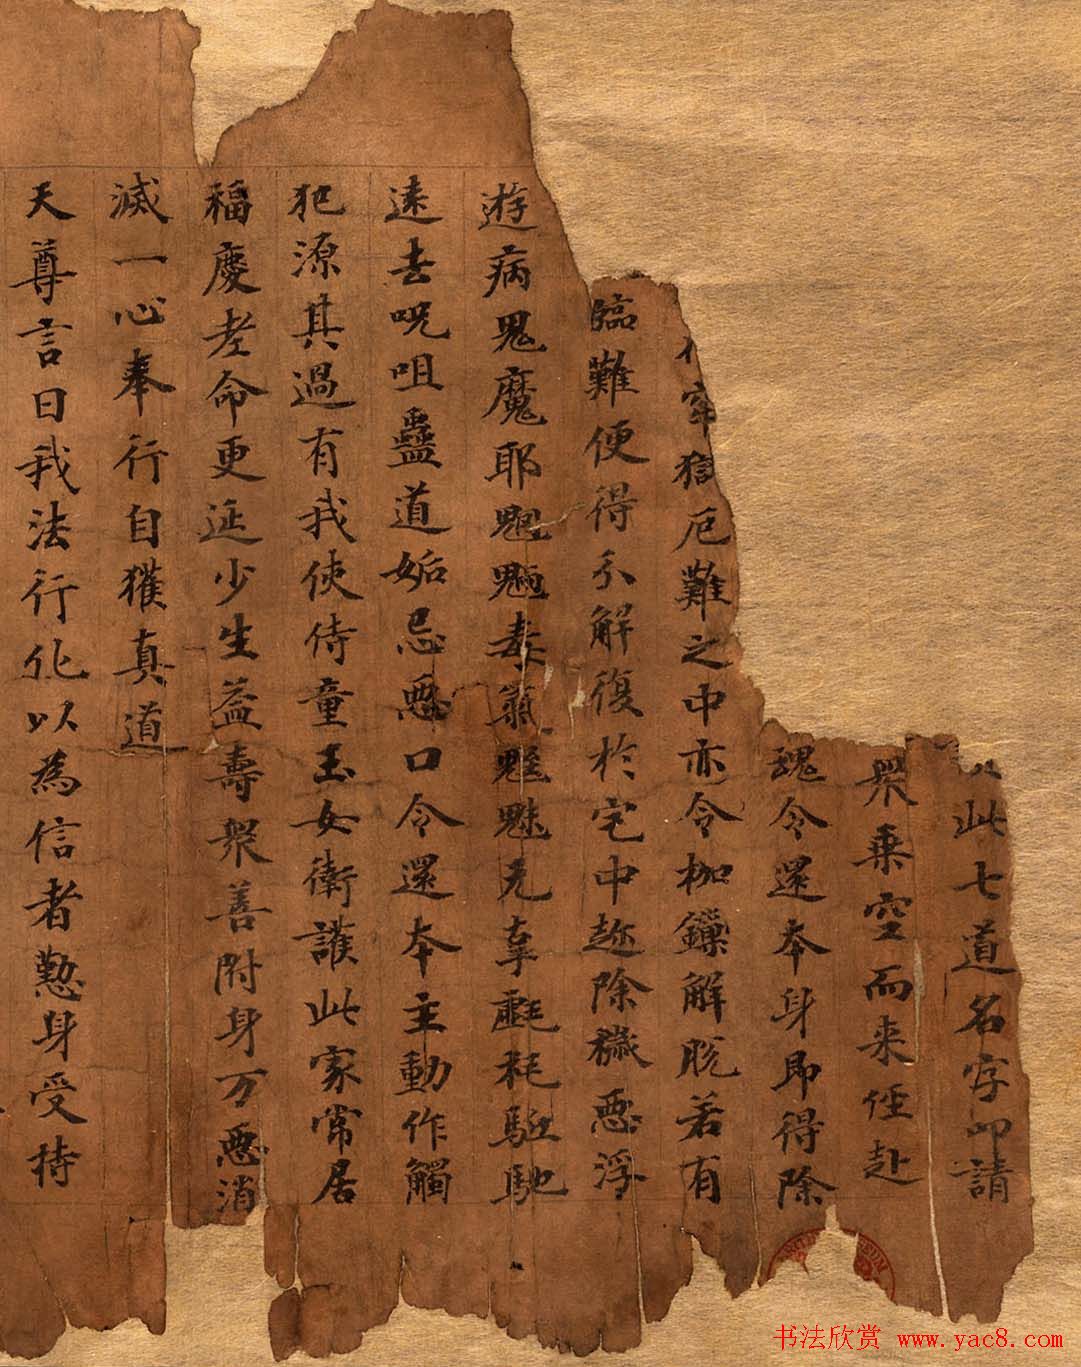 此七道名字叩請
眾乗空而来径赴
魂令還本身即得除
牢獄厄難之中亦令枷鏁解脫若有
臨難便得分解復於宅中逰除穢惡浮
遊病鬼魔耶魍魎毒氣魅无辜耗駈馳
逺去呪咀蠱道妬忌惡口令還本主動作觸
犯源其過有我使侍童玉女衛護此家常居
福慶老命更延少生益壽眾善附身万惡消
滅一心奉行自獲真道
天尊言曰我法行化以為信者懃身受持
书法欣赏 www.yac8.com